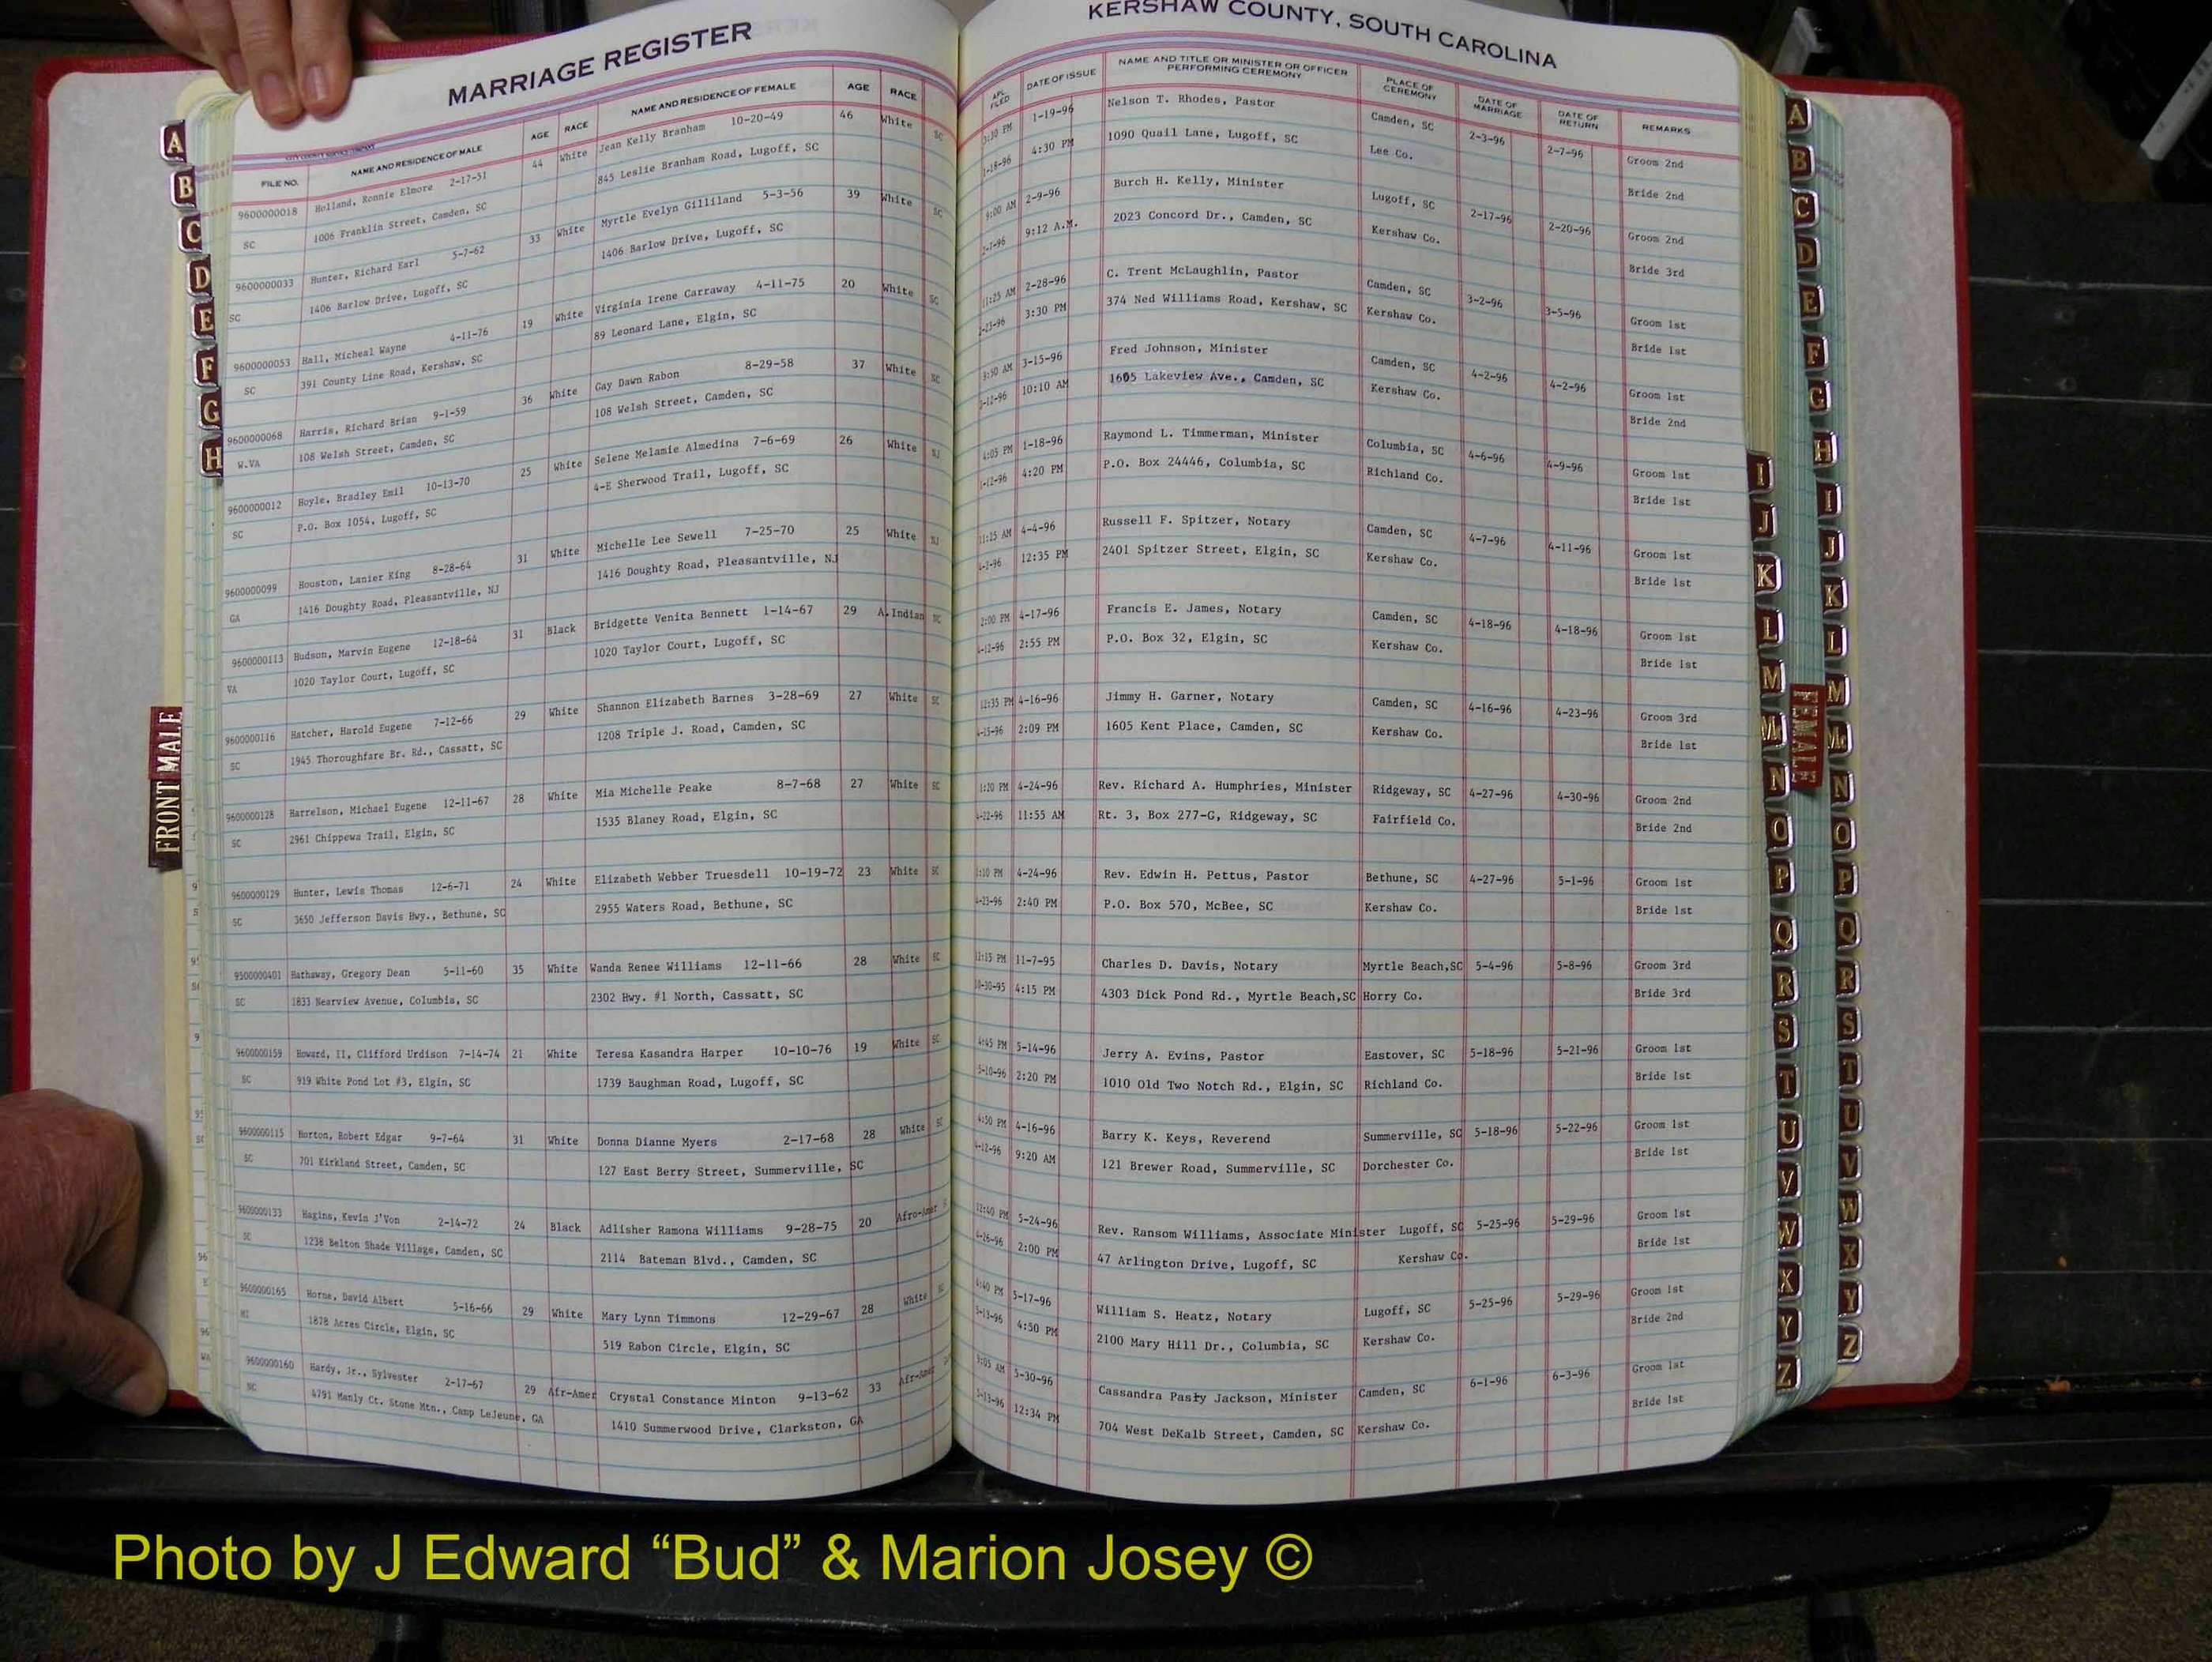 MARRIAGE REGISTER
KERSHAW COUNTY, SOUTH CAROLINA
FILE NO. NAME AND RESIDENCE OF MALE AGE RACE NAME AND RESIDENCE OF FEMALE AGE RACE APL. FILED DATE OF ISSUE NAME AND TITLE OR MINISTER OR OFFICER PERFORMING CEREMONY PLACE OF CEREMONY DATE OF MARRIAGE DATE OF RETURN REMARKS
9600000018 Holland, Ronnie Elmore 2-17-51 44 White Jean Kelly Branham 10-20-49 46 White SC 3:10 PM 1-19-96 Nelson T. Rhodes, Pastor Camden, SC 2-3-96 2-7-96 Groom 2nd
SC 1006 Franklin Street, Camden, SC 845 Leslie Branham Road, Lugoff, SC 1-18-96 4:30 PM 1090 Quail Lane, Lugoff, SC Lee Co. Bride 2nd
9600000033 Hunter, Richard Earl 5-7-62 33 White Myrtle Evelyn Gilliland 5-3-56 39 White SC 9:00 AM 2-9-96 Burch H. Kelly, Minister Lugoff, SC 2-17-96 2-20-96 Groom 2nd
SC 1406 Barlow Drive, Lugoff, SC 1406 Barlow Drive, Lugoff, SC 2-7-96 9:12 A.M. 2023 Concord Dr., Camden, SC Kershaw Co. Bride 3rd
9600000053 Hall, Micheal Wayne 4-11-76 19 White Virginia Irene Carraway 4-11-75 20 White SC 11:25 AM 2-28-96 C. Trent McLaughlin, Pastor Camden, SC 3-2-96 3-5-96 Groom 1st
SC 391 County Line Road, Kershaw, SC 89 Leonard Lane, Elgin, SC 2-23-96 3:30 PM 374 Ned Williams Road, Kershaw, SC Kershaw Co. Bride 1st
9600000068 Harris, Richard Brian 9-1-59 36 White Gay Dawn Rabon 8-29-58 37 White NC 9:50 AM 3-15-96 Fred Johnson, Minister Camden, SC 4-2-96 4-2-96 Groom 1st
W.VA 108 Welsh Street, Camden, SC 108 Welsh Street, Camden, SC 3-12-96 10:10 AM 1605 Lakeview Ave., Camden, SC Kershaw Co. Bride 2nd
9600000012 Hoyle, Bradley Emil 10-13-70 25 White Selene Melamie Almedina 7-6-69 26 White NJ 4:05 PM 1-18-96 Raymond L. Timmerman, Minister Columbia, SC 4-6-96 4-9-96 Groom 1st
SC P.O. Box 1054, Lugoff, SC 4-E Sherwood Trail, Lugoff, SC 1-12-96 4:20 PM P.O. Box 24446, Columbia, SC Richland Co. Bride 1st
9600000099 Houston, Lanier King 8-28-64 31 White Michelle Lee Sewell 7-25-70 25 White NJ 11:25 AM 4-4-96 Russell F. Spitzer, Notary Camden, SC 4-7-96 4-11-96 Groom 1st
GA 1416 Doughty Road, Pleasantville, NJ 1416 Doughty Road, Pleasantville, NJ 4-1-96 12:35 PM 2401 Spitzer Street, Elgin, SC Kershaw Co. Bride 1st
9600000113 Hudson, Marvin Eugene 12-18-64 31 Black Bridgette Venita Bennett 1-14-67 29 A.Indian SC 2:00 PM 4-17-96 Francis E. James, Notary Camden, SC 4-18-96 4-18-96 Groom 1st
VA 1020 Taylor Court, Lugoff, SC 1020 Taylor Court, Lugoff, SC 4-12-96 2:55 PM P.O. Box 32, Elgin, SC Kershaw Co. Bride 1st
9600000116 Hatcher, Harold Eugene 7-12-66 29 White Shannon Elizabeth Barnes 3-28-69 27 White SC 12:35 PM 4-16-96 Jimmy H. Garner, Notary Camden, SC 4-16-96 4-23-96 Groom 3rd
SC 1945 Thoroughfare Br. Rd., Cassatt, SC 1208 Triple J. Road, Camden, SC 4-15-96 2:09 PM 1605 Kent Place, Camden, SC Kershaw Co. Bride 1st
9600000128 Harrelson, Michael Eugene 12-11-67 28 White Mia Michelle Peake 8-7-68 27 White SC 1:20 PM 4-24-96 Rev. Richard A. Humphries, Minister Ridgeway, SC 4-27-96 4-30-96 Groom 2nd
SC 2961 Chippewa Trail, Elgin, SC 1535 Blaney Road, Elgin, SC 4-22-96 11:55 AM Rt. 3, Box 277-G, Ridgeway, SC Fairfield Co. Bride 2nd
9600000129 Hunter, Lewis Thomas 12-6-71 24 White Elizabeth Webber Truesdell 10-19-72 23 White SC 1:10 PM 4-24-96 Rev. Edwin H. Pettus, Pastor Bethune, SC 4-27-96 5-1-96 Groom 1st
SC 3650 Jefferson Davis Hwy., Bethune, SC 2955 Waters Road, Bethune, SC 4-23-96 2:40 PM P.O. Box 570, McBee, SC Kershaw Co. Bride 1st
9500000401 Hathaway, Gregory Dean 5-11-60 35 White Wanda Renee Williams 12-11-66 28 White SC 12:15 PM 11-7-95 Charles D. Davis, Notary Myrtle Beach,SC 5-4-96 5-8-96 Groom 3rd
SC 1833 Nearview Avenue, Columbia, SC 2302 Hwy. #1 North, Cassatt, SC 10-30-95 4:15 PM 4303 Dick Pond Rd., Myrtle Beach,SC Horry Co. Bride 3rd
9600000159 Howard, II, Clifford Urdison 7-14-74 21 White Teresa Kasandra Harper 10-10-76 19 White SC 4:45 PM 5-14-96 Jerry A. Evins, Pastor Eastover, SC 5-18-96 5-21-96 Groom 1st
SC 919 White Pond Lot #3, Elgin, SC 1739 Baughman Road, Lugoff, SC 5-10-96 2:20 PM 1010 Old Two Notch Rd., Elgin, SC Richland Co. Bride 1st
9600000115 Horton, Robert Edgar 9-7-64 31 White Donna Dianne Myers 2-17-68 28 White SC 4:50 PM 4-16-96 Barry K. Keys, Reverend Summerville, SC 5-18-96 5-22-96 Groom 1st
SC 701 Kirkland Street, Camden, SC 127 East Berry Street, Summerville, SC 4-12-96 9:20 AM 121 Brewer Road, Summerville, SC Dorchester Co. Bride 1st
9600000133 Hagins, Kevin J'Von 2-14-72 24 Black Adlisher Ramona Williams 9-28-75 20 Afro-Amer 12:40 PM 5-24-96 Rev. Ransom Williams, Associate Minister Lugoff, SC 5-25-96 5-29-96 Groom 1st
SC 1238 Belton Shade Village, Camden, SC 2114 Bateman Blvd., Camden, SC 4-26-96 2:00 PM 47 Arlington Drive, Lugoff, SC Kershaw Co. Bride 1st
9600000165 Horne, David Albert 5-16-66 29 White Mary Lynn Timmons 12-29-67 28 White SC 4:40 PM 5-17-96 William S. Heatz, Notary Lugoff, SC 5-25-96 5-29-96 Groom 1st
MI 1878 Acres Circle, Elgin, SC 519 Rabon Circle, Elgin, SC 5-13-96 4:50 PM 2100 Mary Hill Dr., Columbia, SC Kershaw Co. Bride 2nd
9600000160 Hardy, Jr., Sylvester 2-17-67 29 Afr-Amer Crystal Constance Minton 9-13-62 33 Afr-Amer 9:05 AM 5-30-96 Cassandra Pasty Jackson, Minister Camden, SC 6-1-96 6-3-96 Groom 1st
NC 4791 Manly Ct. Stone Mtn., Camp LeJeune, GA 1410 Summerwood Drive, Clarkston, GA 5-13-96 12:34 PM 704 West DeKalb Street, Camden, SC Kershaw Co. Bride 1st
A
B
C
D
E
F
G
H
FRONT MALE
I
J
K
L
M
Mc
N
O
P
Q
R
S
T
U
V
W
X
Y
Z
A
B
C
D
E
F
G
H
I
J
K
L
M
Mc
N
O
P
Q
R
S
T
U
V
W
X
Y
Z
FEMALE
Photo by J Edward “Bud” & Marion Josey ©